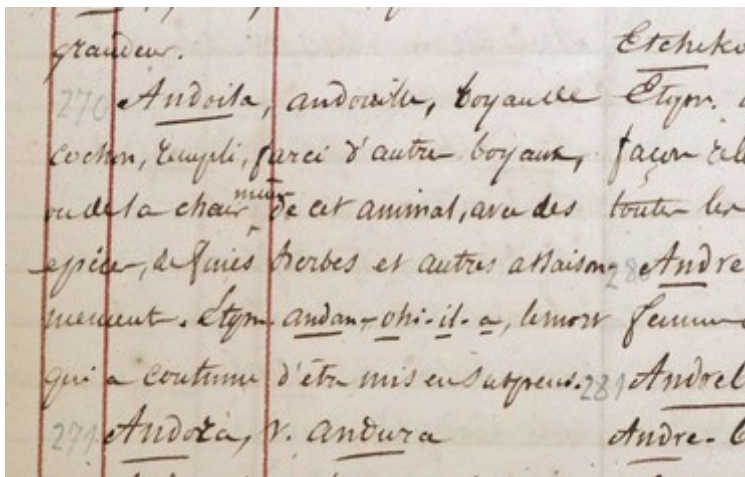 grandeur.
270 Andoila, andouille, boyau de
cochon, rempli, farci d'autre boyaux,
ou de la chair même de cet animal, avec des
epices, de fines herbes et autres assaison
nement. Etym. andan-ohi-il-a, le mort
qui a coutume d'être mis en suspens.
271 Andoza, v. andura
Etcheko
Etym.
façon
toutes les
280 Andre
femme
281 Andrel
Andre-